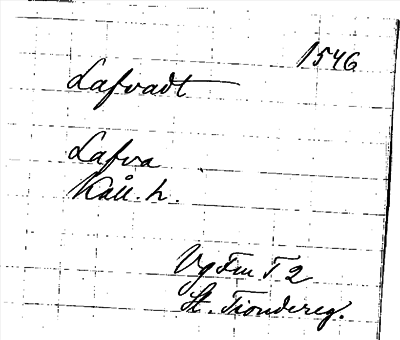 1546
Lafvadt
Lafva
Kåll. h.
Vg Fru T 2
St. Tiondereg.